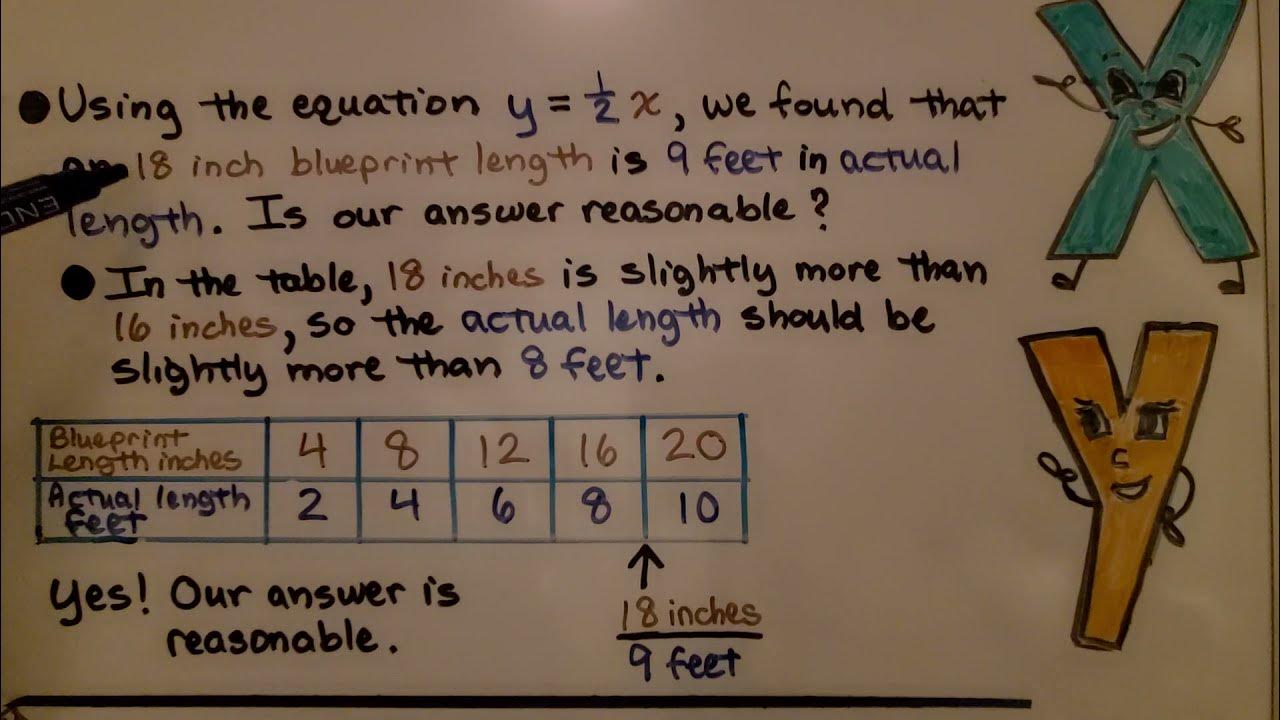 Using the equation y = 1/2 x, we found that
an 18 inch blueprint length is 9 feet in actual
length. Is our answer reasonable?
In the table, 18 inches is slightly more than
16 inches, so the actual length should be
slightly more than 8 feet.
Blueprint
Length inches 4 8 12 16 20
Actual length
feet 2 4 6 8 10
Yes! Our answer is
reasonable.
18 inches
9 feet